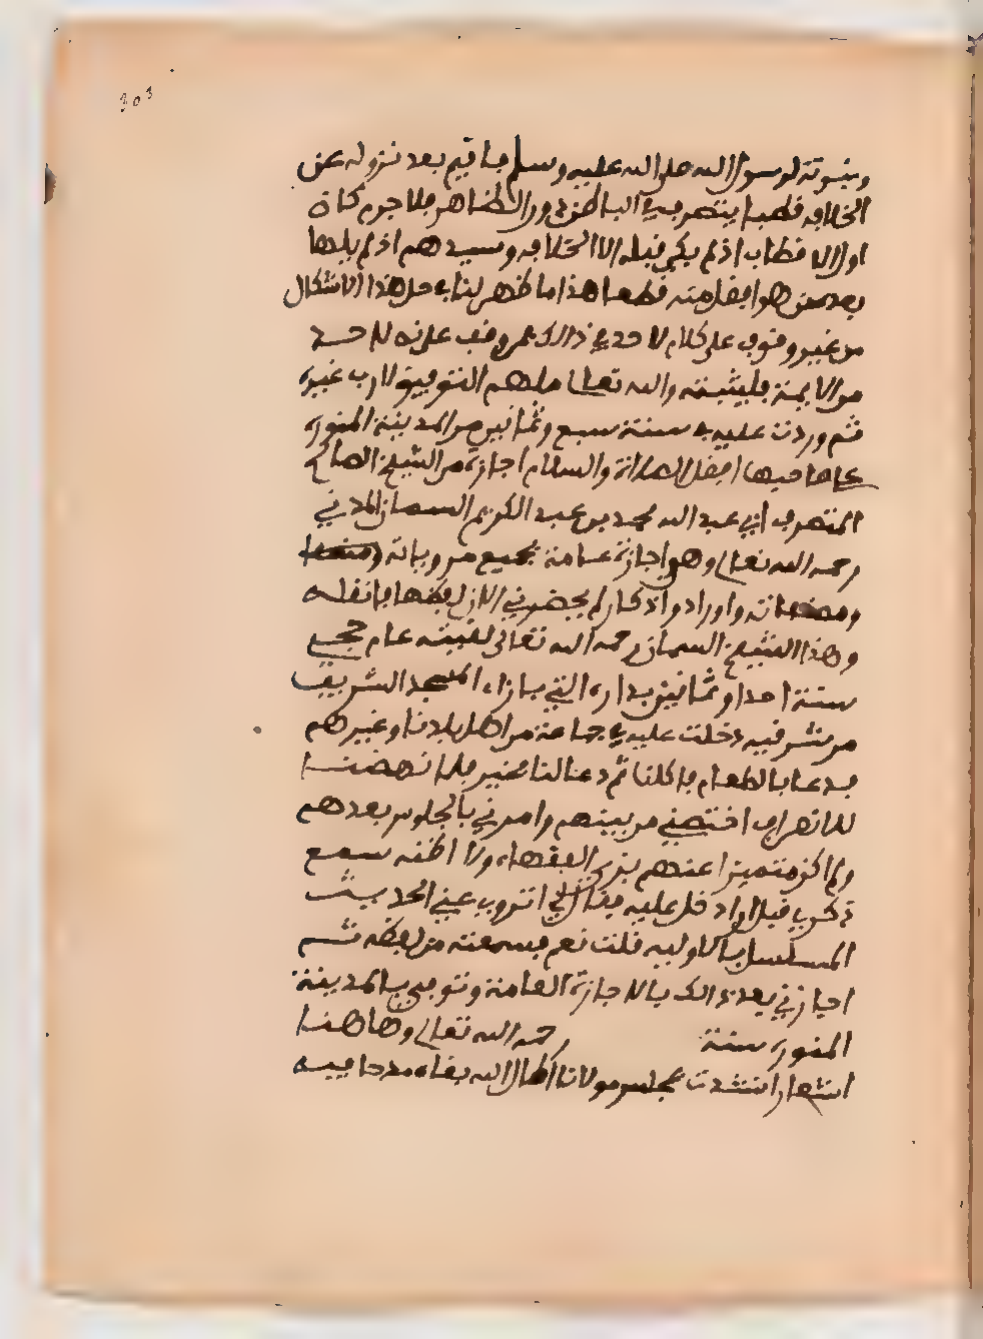 303
وبنبوته لرسول الله صلى الله عليه وسلم باقيم بعد نزوله عن
الخلافة قطبا يتصرف في الباطن دون الظاهر فلا جرم كان
اول الاقطاب اذ لم يكن قبله الا الخلافة وسيدهم اذ لم يلها
بعد من هو افضل منه قطعا هذا ما ظهر لنا في حل هذا الاشكال
من غير وقوف على كلام لاحد في ذالك فمن وقف على نص لاحد
من الايمة فليثبته والله تعالى ملهم التوفيق لا رب غيره
ثم وردت عليه في سنة سبع وثمانين من المدينة المنورة
على صاحبها افضل الصلاة والسلام اجازة من الشيخ الصالح
المتصوف ابي عبد الله محمد بن عبد الكريم السمان المدني
رحمه الله تعالى وهو اجازة عامة بجميع مروياته
ومصنفاته واوراد واذكار لم يحضرني الان لفظها فانقله
وهذا الشيخ السمان رحمه الله تعالى لقيته عام حجي
سنة احدا وثمانين بداره التي بازاء المسجد الشريف
من شرقيه دخلت عليه في جماعة من اهل بلدنا وغيرهم
فدعا بالطعام فاكلنا ثم دعا لنا بخير فلما نهضنا
للانصراف اختصني من بينهم وامرني بالجلوس بعدهم
ولم اكن متميزا عندهم بزي الفقهاء ولا اظنه سمع
ذكري قبل ان ادخل عليه فقال لي اتروي عني الحديث
المسلسل بالاولية قلت نعم فسمعته من لفظه ثم
اجازني بعد ذالك بالاجازة العامة وتوفي بالمدينة
المنورة سنة رحمه الله تعالى وهاهنا
اشعار انشدت بمجلس مولانا اطال الله بقاه مدحا فيه